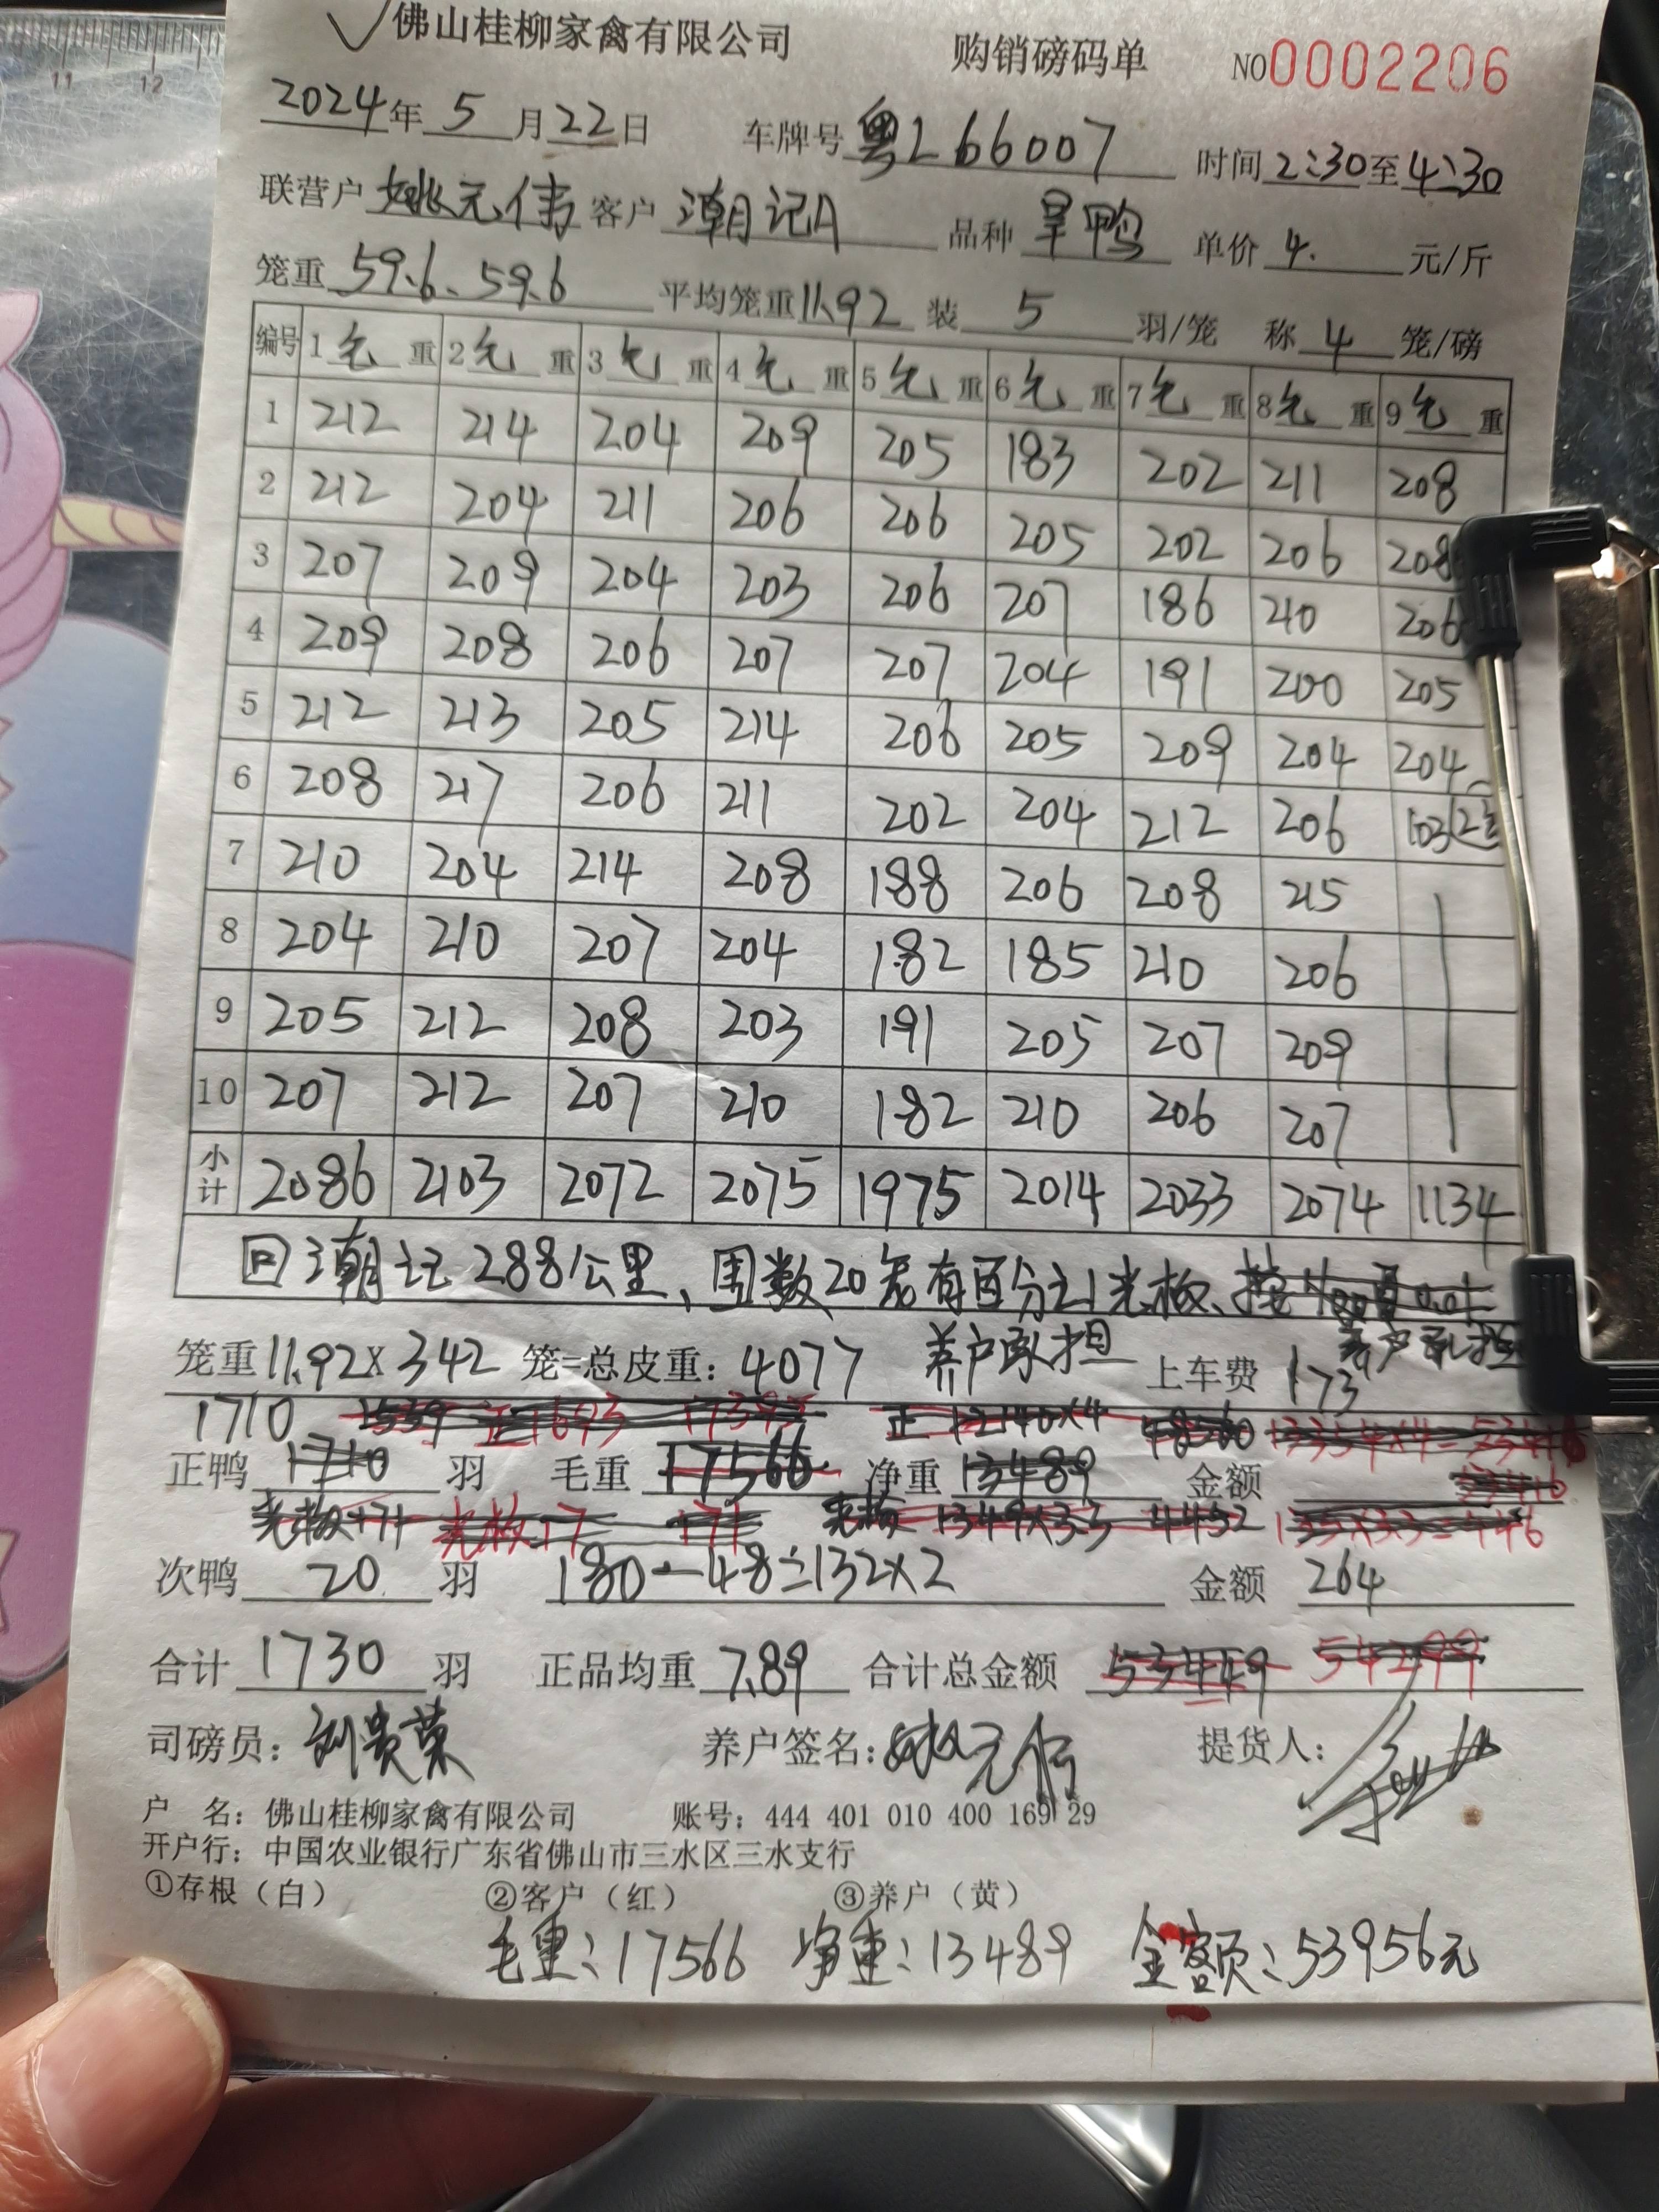 佛山桂柳家禽有限公司 购销磅码单 NO0002206
2024年5月22日 车牌号粤L66007 时间2:30至4:30
联营户姚元伟 客户潮记A 品种旱鸭 单价4.元/斤
笼重59.6、59.6 平均笼重11.92 装5羽/笼 称4笼/磅
编号 1毛重 2毛重 3毛重 4毛重 5毛重 6毛重 7毛重 8毛重 9毛重
1 212 214 204 209 205 183 202 211 208
2 212 204 211 206 206 205 202 206 208
3 207 209 204 203 206 207 186 210 206
4 209 208 206 207 207 204 191 200 205
5 212 213 205 214 206 205 209 204 204
6 208 217 206 211 202 204 212 206 103(2笼
7 210 204 214 208 188 206 208 215
8 204 210 207 204 182 185 210 206
9 205 212 208 203 191 205 207 209
10 207 212 207 210 182 210 206 207
小计 2086 2103 2072 2075 1975 2014 2033 2074 1134
回潮记288公里、围数20笼有百分之1光板、
笼重11.92×342笼=总皮重:4077 养户承担 上车费173 养户承担
1710 1539 正1693 17395 正12140×4 48560 13354×4=53416
正鸭1710羽 毛重17566 净重13489 金额53416
光板171 光板17 171 光板1349×3.3 4452 135×3.3=446
次鸭20羽 180-48=132×2 金额264
合计1730羽 正品均重7.89 合计总金额53449 54299
司磅员:刘贵荣 养户签名:姚元伟 提货人:
户 名:佛山桂柳家禽有限公司 账号:444 401 010 400 169 29
开户行:中国农业银行广东省佛山市三水区三水支行
①存根(白) ②客户(红) ③养户(黄)
毛重:17566 净重:13489 金额:53956元